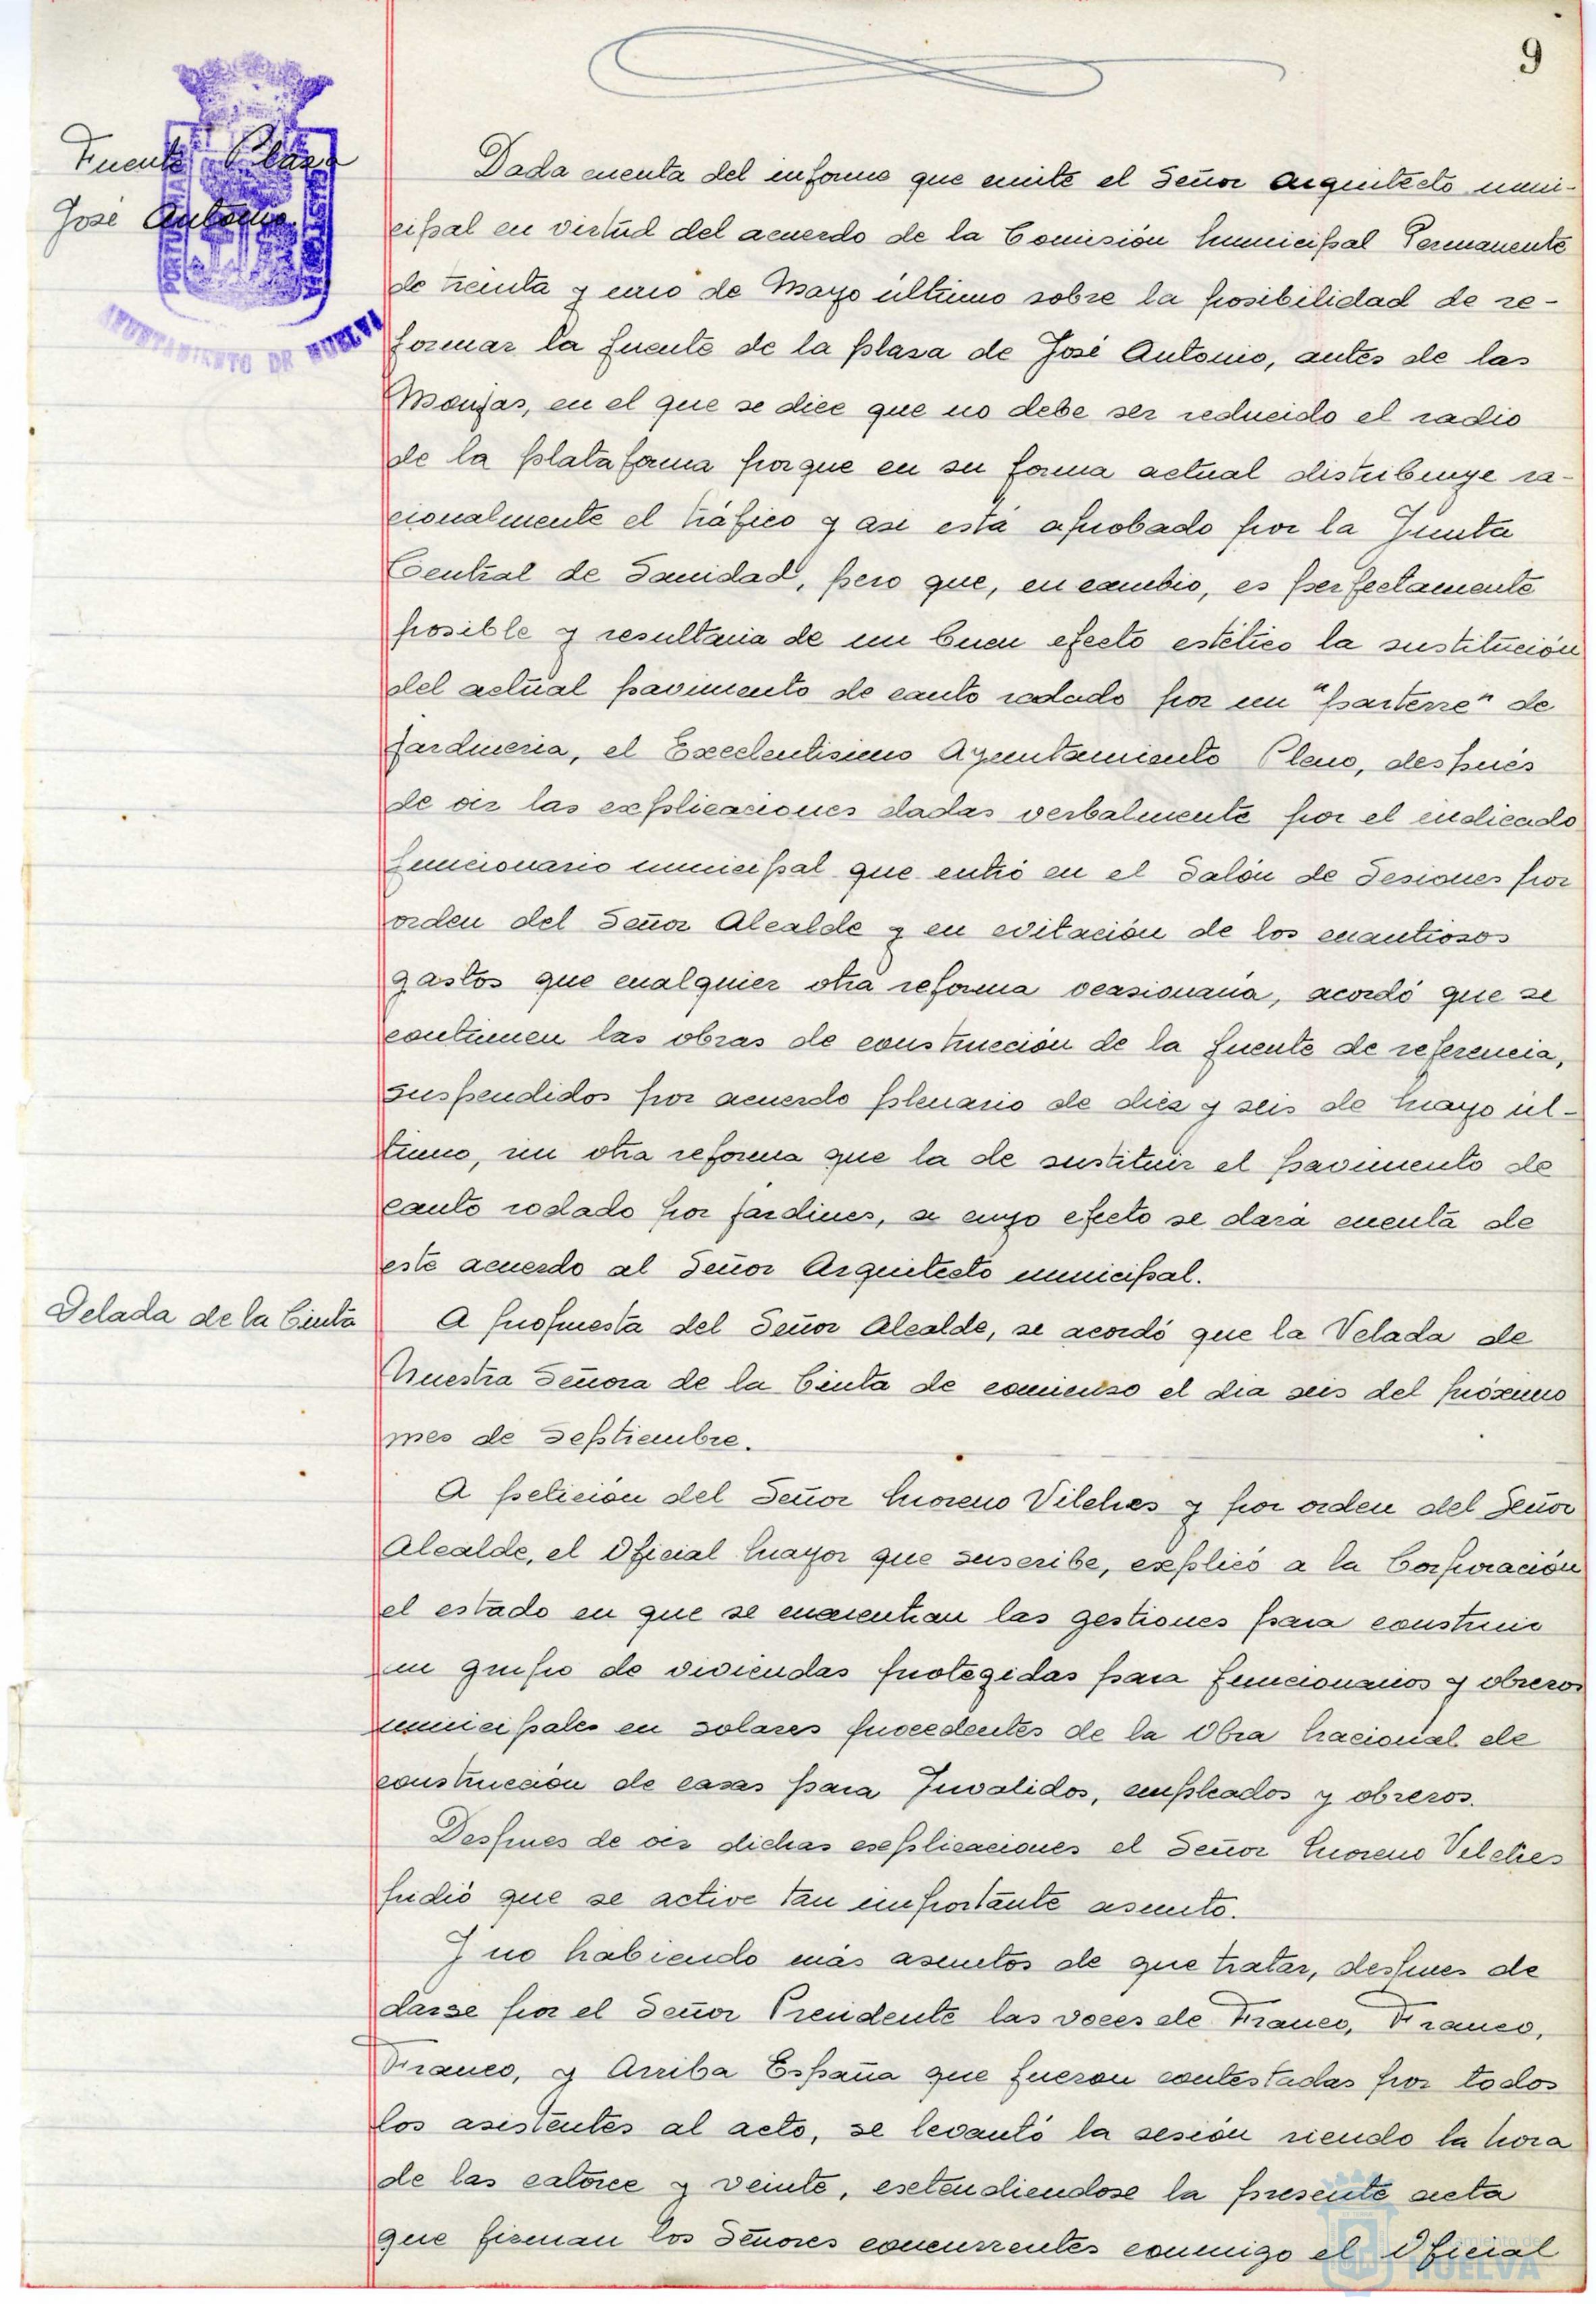 9
Fuente Plaza
José Antonio.
PORTUS MARIS ET TERRAE CUSTODIA
AYUNTAMIENTO DE HUELVA
Dada cuenta del informe que emite el Señor Arquitecto muni-
cipal en virtud del acuerdo de la Comisión Municipal Permanente
de treinta y uno de Mayo último sobre la posibilidad de re-
formar la fuente de la plaza de José Antonio, antes de las
Monjas, en el que se dice que no debe ser reducido el radio
de la plataforma porque en su forma actual distribuye ra-
cionalmente el tráfico y asi está aprobado por la Junta
Central de Sanidad, pero que, en cambio, es perfectamente
posible y resultaria de un buen efecto estético la sustitución
del actual pavimento de canto rodado por un "parterre" de
jardineria, el Excelentisimo Ayuntamiento Pleno, después
de oir las explicaciones dadas verbalmente por el indicado
funcionario municipal que entró en el Salón de Sesiones por
orden del Señor Alcalde y en evitación de los cuantiosos
gastos que cualquier otra reforma ocasionaria, acordó que se
continuen las obras de construcción de la fuente de referencia,
suspendidos por acuerdo plenario de diez y seis de Mayo úl-
timo, sin otra reforma que la de sustituir el pavimento de
canto rodado por jardines, a cuyo efecto se dará cuenta de
este acuerdo al Señor Arquitecto municipal.
Velada de la Cinta
A propuesta del Señor Alcalde, se acordó que la Velada de
Nuestra Señora de la Cinta de comienzo el dia seis del próximo
mes de Septiembre.
A petición del Señor Moreno Vilches y por orden del Señor
Alcalde, el Oficial Mayor que suscribe, explicó a la Corporación
el estado en que se encuentran las gestiones para construir
un grupo de viviendas protegidas para funcionarios y obreros
municipales en solares procedentes de la Obra Nacional de
construcción de casas para Invalidos, empleados y obreros.
Despues de oir dichas explicaciones el Señor Moreno Vilches
pidió que se active tan importante asunto.
Y no habiendo más asuntos de que tratar, despues de
darse por el Señor Presidente las voces de Franco, Franco,
Franco, y Arriba España que fueron contestadas por todos
los asistentes al acto, se levantó la sesión siendo la hora
de las catorce y veinte, extendiendose la presente acta
que firman los Señores concurrentes conmigo el Oficial
HUELVA